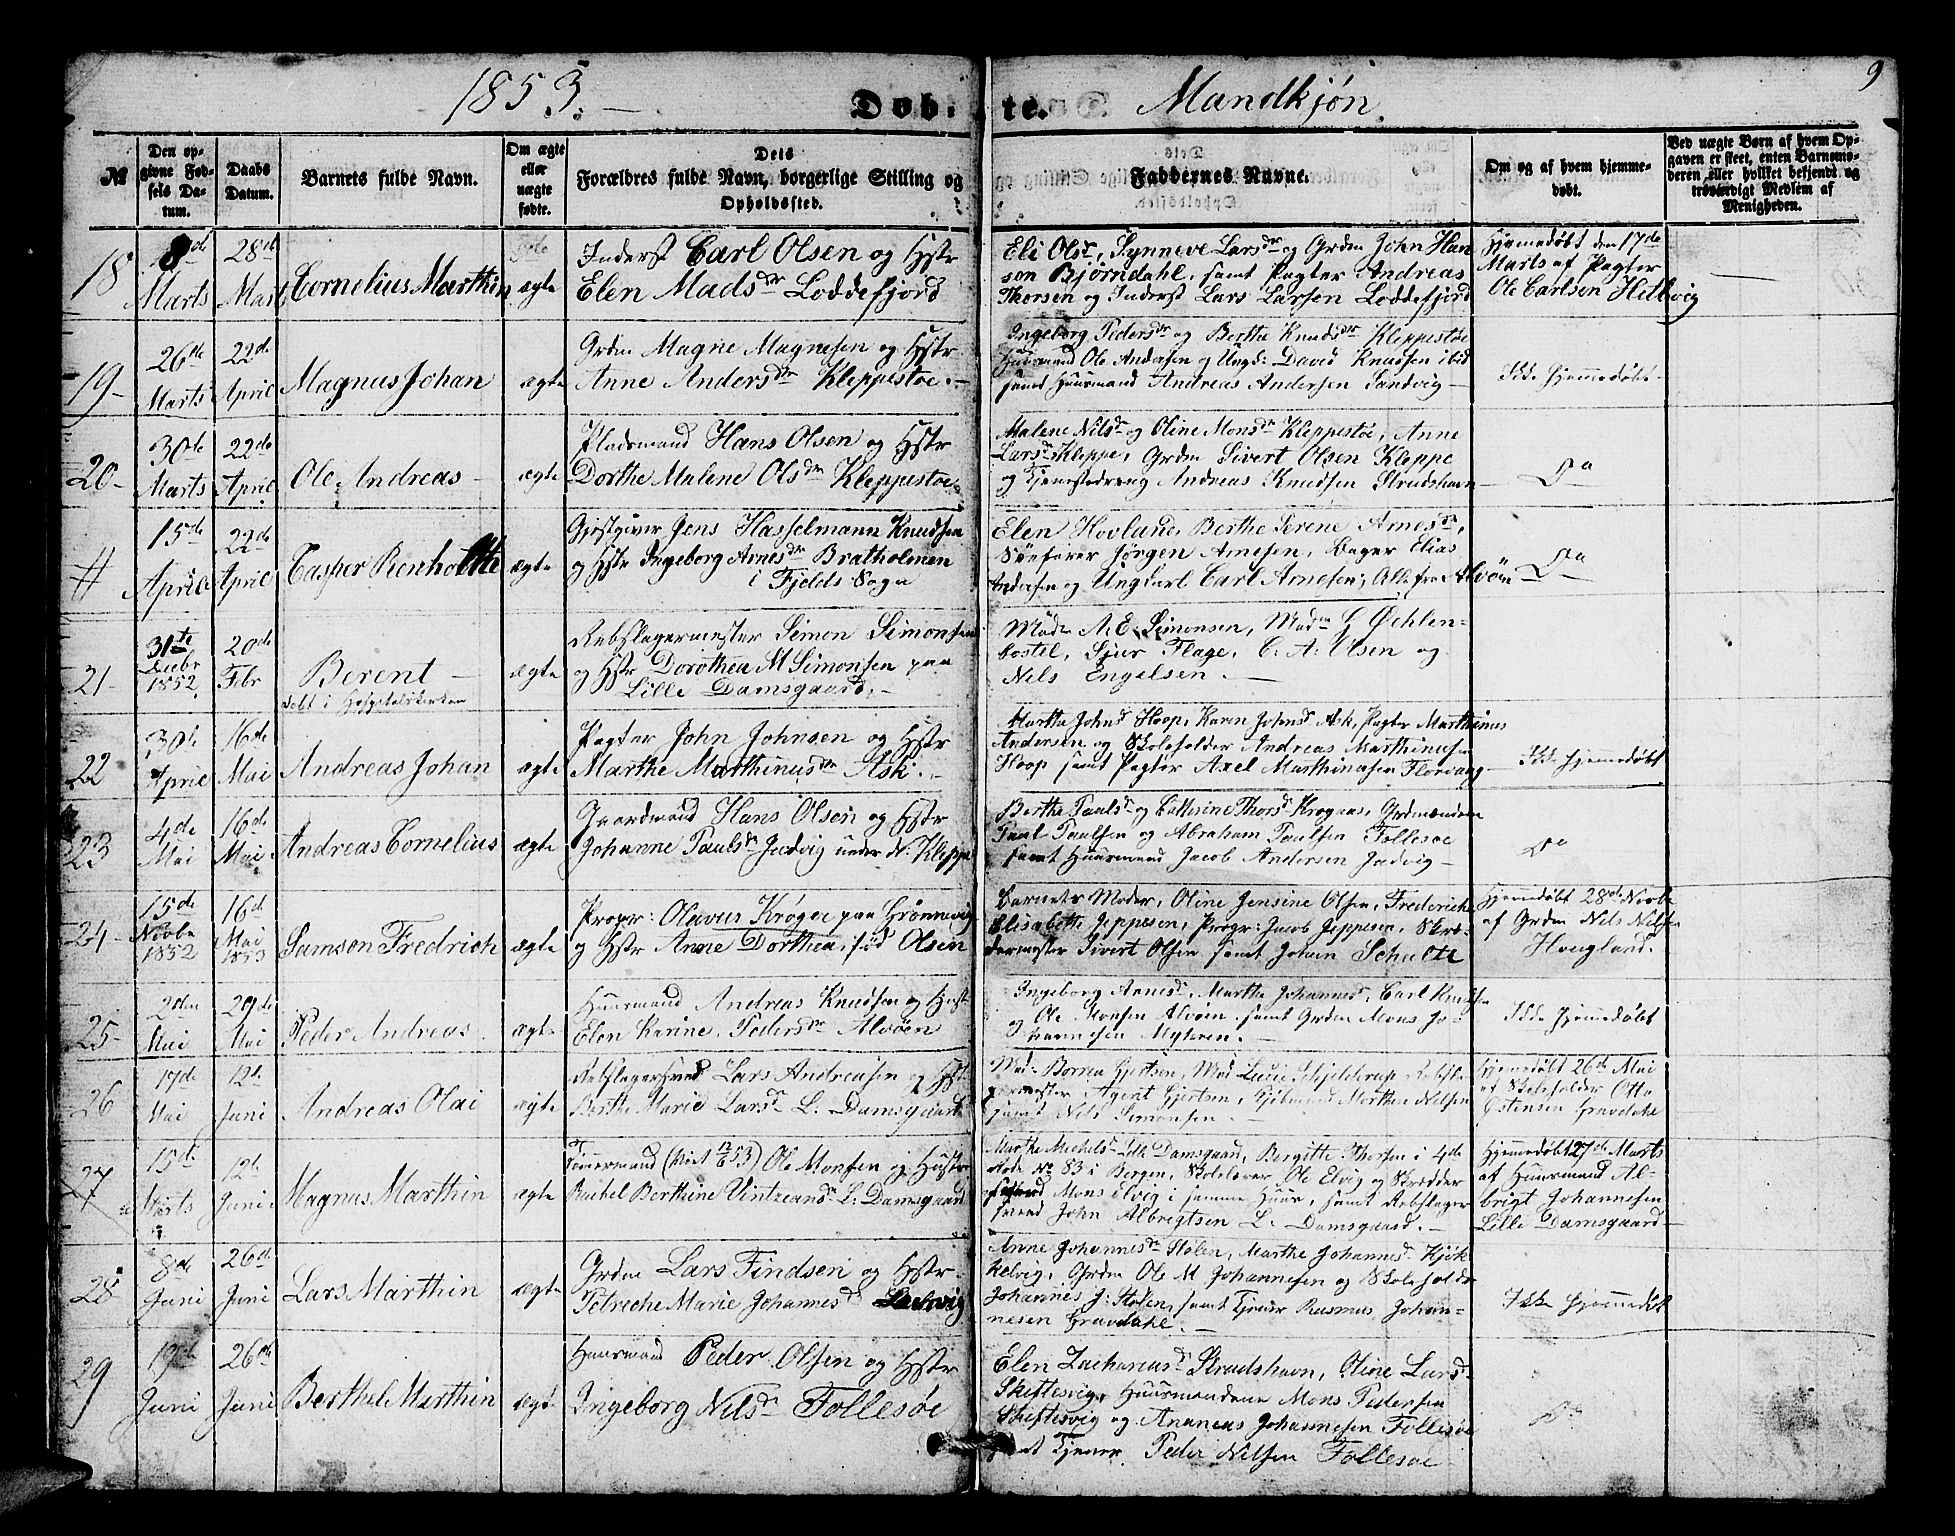 1853.
Døbte.
Mandkjøn
9
№
Den opgivne Fødsels Datum.
Daabs Datum.
Barnets fulde Navn.
Om ægte eller uægte fødte.
Dets Forældres fulde Navn, borgerlige Stilling og Opholdssted.
Faddernes Navne.
Om og af hvem hjemmedøbt.
Ved uægte Børn af hvem Opgaven er skeet, enten Barnemoderen eller hvilket bekjendt og troværdigt Medlem af Menigheden.
18
8de Marts
28de Marts
Cornelius Marthin
ægte
Inderst Carl Olsen og Hstr
Elen Madsdr Loddefjord
Eli Olsdr, Synneve Larsdr og Grdm John Han
sen Bjørndahl, samt Pagter Andreas
Thorsen og Inderst Lars Larsen Loddefjord
Hjemmedøbt den 17de
Marts af Pagter
Ole Carlsen Hilbvig
19
26de Marts
22de April
Magnus Johan
ægte
Grdm Magne Magnesen og Hstr
Anne Andersdr Kleppestøe.
Ingeborg Pedersdr og Berthe Knudsdr Kleppestøe
Huusmand Ole Andersen og Ungk: David Knudsen ibid
samt Huusmand Andreas Andersen Sandvig
Ikke hjemmedøbt
20
30te Marts
22de April
Ole Andreas
ægte
Pladsmand Hans Olsen og Hstr
Dorthe Malene Olsdr Kleppestøe
Malene Nilsdr og Oline Monsdr Kleppestøe, Anne
Larsdr Kleppe, Grdm Sivert Olsen Kleppe
og Tjenestedreng Andreas Knudsen Strudshavn
Do
#
15de April
22de April
Casper Rienholdt
ægte
Gjestgiver Jens Hasselmann Knudsen
og Hstr Ingeborg Arnesdr Bratholmen
i Fjelds Sogn
Elen Hovland, Berthe Serene Arnesdr,
Søefarer Jørgen Arnesen, Bager Elias
Andersen og Ungkarl Carl Arnesen, Alle fra Alvøen
Do
21
31te Decbr 1852
20de Febr
Berent
døbt i Hospitalskirken
ægte
Rebslagermester Simon Simonsen
og Hstr Dorothea M Simonsen paa
Lille Damsgaard.
Mad: A. E. Simonsen, Mad: G Øchlen-
bostel, Sjur Flage, C. A. Olsen og
Nils Engelsen.
22
30te April
16de Mai
Andreas Johan
ægte
Pagter John Johnsen og Hstr
Marthe Marthinusdr Ask.
Martha Johnsdr Hoop, Karen Johnsdr Ask, Pagter Marthinus
Andersen og Skoleholder Andreas Marthinusen
Hoop samt Pagter Axel Marthinusen Florvaag
Ikke hjemmedøbt
23
4de Mai
16de Mai
Andreas Cornelius
ægte
Gaardmand Hans Olsen og Hstr
Johanne Paulsdr Jadvig under N: Kleppe
Berthe Paulsdr og Cathrine Thorsdr Krogaas, Grdmændene
Paul Paulsen og Abraham Paulsen Follesøe
samt Huusmand Jacob Andersen Jadvig
Do
24
15de Novbr 1852
16de Mai 1853
Samson Fredrich
ægte
Propr: Olavus Krøger paa Grønnevig
og Hstr Anne Dorthea, fød Olsen
Barnets Moder, Oline Jensine Olsen, Frederiche
Elisabeth Jeppesen, Propr: Jacob Jeppesen, Skræ-
dermester Sivert Olsen samt Johan Schulte
Hjemmedøbt 28de Novbr
af Grdm Nils Nilsen
Hougland.
25
2den Mai
29de Mai
Peder Andreas
ægte
Huusmand Andreas Knudsen og Hustr
Elen Karine Pedersdr Alvøen
Ingeborg Arnesdr, Marthe Johannesdr, Carl Knudsen
og Ole Monsen Alvøen samt Grdm Mons Jo-
hannesen Myhren.
Ikke hjemmedøbt
26
17de Mai
12te Juni
Andreas Olai
ægte
Rebslagersvend Lars Andreasen og Hst
Berthe Marie Larsdr L. Damsgaard
Mad: Borna Gjertsen, Mad Lucie Schjelderup, Rebsla
germester Agent Gjertsen, Kjøbmand Morthen Nilsen
samt Nils Simonsen
Hjemmedøbt 26de Mai
af Skoleholder Otto
Østensen Gravdahl
27
15de Marts
12te Juni
Magnus Marthin
ægte
Tømmermand Ole Monsen og Hustr
Rachel Berthine L. Damsgaard
Marthe Michelsdr Lille Damsgaard, Bergitte Thorsen i 4de
Rode No 83 i Bergen, Skolelærer Ole Elvig og Skrædder
svend Mons Elvig i samme Huus, samt Rebslager
svend John Albregtsen L. Damsgaard.
Hjemmedøbt 27de Marts
af Huusmand Al-
brigt Johannesen
Lille Damsgaard
28
8de Juni
26de Juni
Lars Marthin
ægte
Grdm Lars Findsen og Hstr
Petreche Marie Johannesdr
Anne Johannesdr Stølen, Marthe Johannesdr Kjøk
kelvig, Grdm Ole M Johannesen og Skoleholder
Johannes J. Stølen, samt Tjener Rasmus Johan-
nesen Gravdahl.
Ikke hjemmedøbt
29
19de Juni
26de Juni
Berthel Marthin
ægte
Huusmand Peder Olsen og Hstr
Ingeborg Nilsdr Follesøe
Elen Zachariasdr Strudshavn, Oline Larsdr
Skiftesvig, Huusmændene Mons Pedersen
Skiftesvig og Ananias Johannesen Follesøe
samt Tjener Peder Nilsen Follesøe
Do